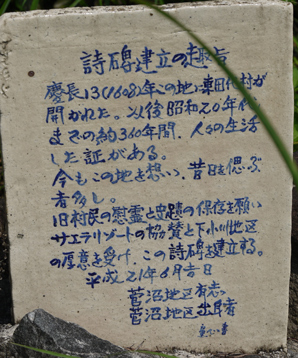 詩碑建立の趣旨
慶長13(1608)年この地に車田代村が
開かれた。以後昭和20年代
までの約360年間、人々の生活
した証がある。
今もこの地を想い、昔日を偲ぶ
者多し。
旧村民の慰霊と史蹟の保存を願い
サエラリゾートの協賛と下小川地区
の厚意を受け、この詩碑を建立する。
平成21年6月吉日
菅沼地区有志
菅沼地区出身者